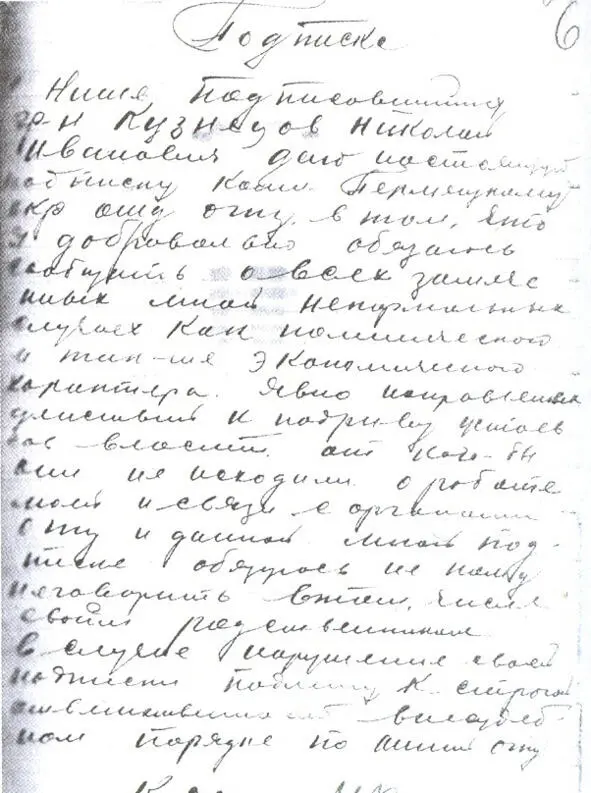 Подписка 6
Ниже Подписовшийся
гр-н Кузнецов Николай
Иванович даю настоящую
подписку Коми Пермяцкому
окр отд огпу, в том, что
я добровольно обязаюсь
сообщать о всех замече
нных мной ненормальных
случаех как политического
и экономического
характера. Явно направлен
к подрыву устоев
сов власти от кого-бы
они не исходили о работе
моей и связи с органами
огпу и данной мной под-
писке обязуюсь не кому
неговорить втом, числе
своим родственникам
в случае нарушения своей
подписки подлежу к строгой
внесудеб-
ном порядке по линии огпу